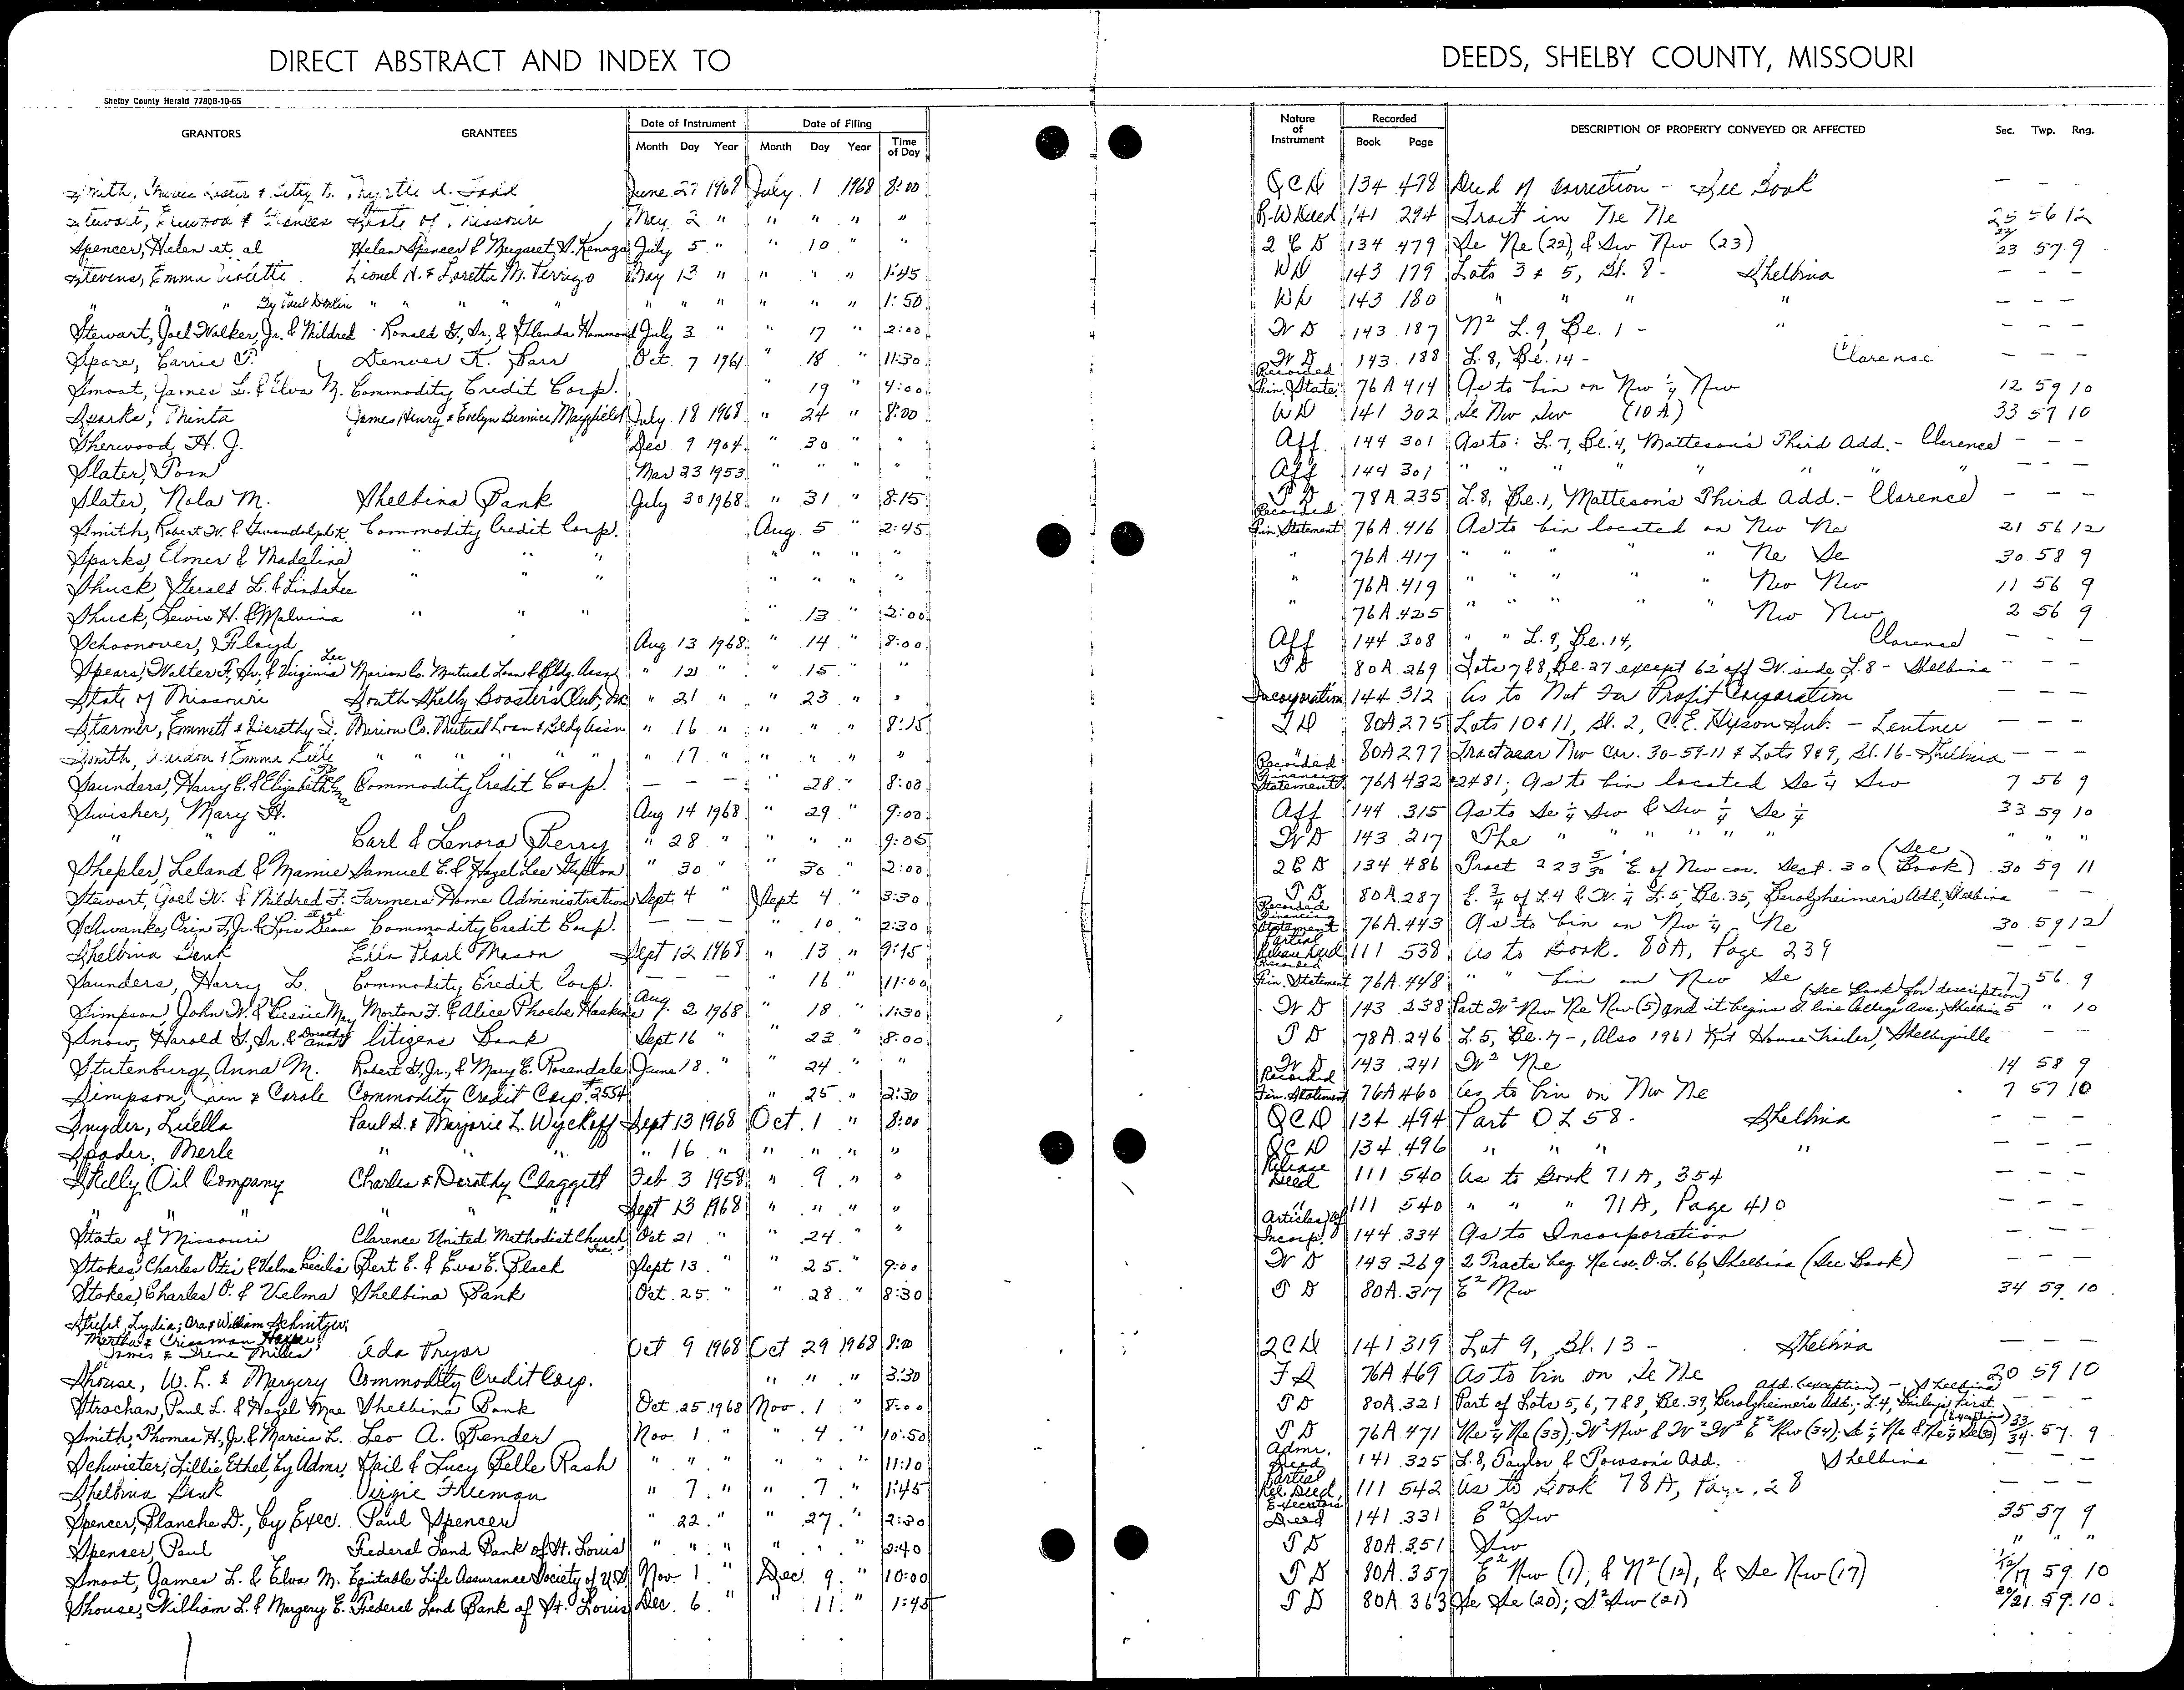 DIRECT ABSTRACT AND INDEX TO
DEEDS, SHELBY COUNTY, MISSOURI
Shelby County Herald 7780B-10-65
GRANTORS GRANTEES Date of Instrument Month Day Year Date of Filing Month Day Year Time of Day Nature of Instrument Recorded Book Page DESCRIPTION OF PROPERTY CONVEYED OR AFFECTED Sec. Twp. Rng.
Smith, & Betty Myrtle Todd June 27 1968 July 1 1968 8:00 QCD 134 478 Deed of Correction - See Book — — —
Stewart, Elwood & Frances State of Missouri May 2 " " " " " R-W Deed 141 294 Tract in Ne Ne 25 56 12
Spencer, Helen et al Helen Spencer & Margaret S. Kenaga July 5 " " 10 " " 2 C D 134 479 Se Ne (22) & Sw Nw (23) 22/23 57 9
Stevens, Emma Violette Lionel H. & Loretta M. Perrigo May 13 " " " " 1:45 WD 143 179 Lots 3 & 5, Bl. 8 - Shelbina — — —
" " " By Paul " " " " " " " " " " 1:50 WD 143 180 " " " " — — —
Stewart, Joel Walker, Jr. & Mildred Ronald G., Sr., & Glenda Hammond July 3 " " 17 " 2:00 W D 143 187 N² L. 9, Be. 1 - " — — —
Spare, Carrie P. Denver K. Parr Oct. 7 1961 " 18 " 11:30 W D 143 188 L. 8, Be. 14 - Clarence — — —
Smoot, James L. & Elva M. Commodity Credit Corp. " 19 " 4:00 Recorded Fin. State. 76A 414 As to bin on Nw ¼ Nw 12 59 10
Sparks, Minta James Henry & Evelyn Bernice Mayfield July 18 1968 " 24 " 8:00 WD 141 302 Se Nw Sw (10 A) 33 57 10
Sherwood, H. J. Dec 9 1904 " 30 " " Aff. 144 301 As to: L. 7, Be. 4, Matteson's Third Add. - Clarence — — —
Slater, Tom Mar 23 1953 " " " " Aff 144 301 " " " " " " " — — —
Slater, Nola M. Shelbina Bank July 30 1968 " 31 " 8:15 T D 78A 235 L. 8, Be. 1, Matteson's Third Add. - Clarence — — —
Smith, Robert W. & Gwendolyn K. Commodity Credit Corp. Aug. 5 " 2:45 Recorded Fin. Statement 76A 416 As to bin located on Nw Ne 21 56 12
Sparks, Elmer & Madeline " " " " " " " " 76A 417 " " " " " Ne Se 30 58 9
Shuck, Gerald L. & Linda Lee " " " " " " " " 76A 419 " " " " " Nw Nw 11 56 9
Shuck, Lewis H. & Malvina " " " " 13 " 2:00 " 76A 425 " " " " " Nw Nw 2 56 9
Schoonover, Floyd Aug 13 1968 " 14 " 8:00 Aff 144 308 " " L. 9, Be. 14, Clarence — — —
Spears, Walter F., Sr., & Virginia Lee Marion Co. Mutual Loan & Bldg. Assn " 12 " " 15 " " T D 80A 269 Lots 7 & 8, Be. 27 except 62' off W. side L. 8 - Shelbina — — —
State of Missouri South Shelby Boosters Club, Inc " 21 " " 23 " " Incorporation 144 312 As to Not For Profit Corporation — — —
Starmer, Emmett & Dorothy D. Marion Co. Mutual Loan & Bldg Assn " 16 " " " " 8:15 T D 80A 275 Lots 10 & 11, Bl. 2, C. E. Hixson Sub. - Lentner — — —
Smith, & Emma " " " " " " 17 " " " " " " 80A 277 Tract near Nw cor. 30-59-11 & Lots 8 & 9, Bl. 16 - Shelbina — — —
Saunders, Harry C. & Elizabeth Commodity Credit Corp. — — — " 28 " 8:00 Recorded Financing Statement 76A 432 #2481; As to bin located Se ¼ Sw 7 56 9
Swisher, Mary H. Aug 14 1968 " 29 " 9:00 Aff 144 315 As to Se ¼ Sw & Sw ¼ Se ¼ 33 59 10
" " " Carl & Lenora Berry " 28 " " " " 9:05 W D 143 217 The " " " " " " " "
Shepler, Leland & Mamie Samuel E. & Hazel Lee Gupton " 30 " " 30 " 2:00 2 C D 134 486 Tract 223 5/30 E. of Nw cor. Sect. 30 (See Book) 30 59 11
Stewart, Joel W. & Mildred F. Farmers Home Administration Sept 4 " Sept 4 " 3:30 T D 80A 287 E. ¾ of L. 4 & W. ¼ L. 5, Be. 35, Berolzheimer's Add, Shelbina — —
Schwanke, Orin F., Jr. & Lois Deane et al Commodity Credit Corp. — — — " 10 " 2:30 Recorded Financing Statement 76A 443 As to bin on Nw ¼ Ne 30 59 12
Shelbina Bank Ella Pearl Mason Sept 12 1968 " 13 " 9:15 Partial Release Deed 111 538 As to Book. 80A, Page 239 — — —
Saunders, Harry L. Commodity Credit Corp. — — — " 16 " 11:00 Recorded Fin. Statement 76A 448 " " bin on Nw Se 7 56 9
Simpson, John W. & Bessie May Morton F. & Alice Phoebe Haskins Aug. 2 1968 " 18 " 1:30 W D 143 238 Part W² Nw Ne Nw (5) and it begins S. line College Ave., Shelbina (See Book for description) 5 " 10
Snow, Harold G., Sr. & Dorothy Ann Citizens Bank Sept 16 " " 23 " 8:00 T D 78A 246 L. 5, Be. 17 -, Also 1961 Kit House Trailer, Shelbyville — —
Stutenburg, Anna M. Robert G., Jr., & Mary E. Rosendale June 18 " " 24 " " W D 143 241 W² Ne 14 58 9
Simpson, & Carole Commodity Credit Corp. #2554 " 25 " 2:30 Recorded Fin. Statement 76A 460 As to bin on Nw Ne 7 57 10
Snyder, Luella Paul S. & Marjorie L. Wyckoff Sept 13 1968 Oct. 1 " 8:00 QCD 134 494 Part O L 58. Shelbina — — —
Spader, Merle " " " 16 " " " " " QCD 134 496 " " " " — — —
Skelly Oil Company Charles & Dorothy Claggett Feb 3 1958 " 9 " " Release Deed 111 540 As to Book 71A, 354 — — —
" " " " " " Sept 13 1968 " " " " " 111 540 " " " 71A, Page 410 — — —
State of Missouri Clarence United Methodist Church, Inc. Oct 21 " " 24 " " Articles of Incorp. 144 334 As to Incorporation — — —
Stokes, Charles Otis & Velma Cecilia Bert E. & Eva E. Black Sept 13 " " 25 " 9:00 W D 143 269 2 Tracts beg. Ne cor. O. L. 66, Shelbina (See Book) — — —
Stokes, Charles O. & Velma Shelbina Bank Oct. 25 " " 28 " 8:30 T D 80A 317 E² Nw 34 59 10
Stiefel, Lydia; Ora & William Schnitzer;
Martha & Hayes;
James & Irene Miller Ada Pryor Oct 9 1968 Oct 29 1968 8:00 2CD 141 319 Lot 9, Bl. 13 - Shelbina — — —
Shouse, W. L. & Margery Commodity Credit Corp. " " " 3:30 F S 76A 469 As to bin on Se Ne 20 59 10
Strachan, Paul L. & Hazel Mae Shelbina Bank Oct. 25 1968 Nov. 1 " 8:00 T D 80A 321 Part of Lots 5, 6, 7 & 8, Be. 39, Berolzheimer's Add.; L. 4, Bailey's First Add. (exception) - Shelbina — — —
Smith, Thomas H., Jr. & Marcia L. Leo A. Bender Nov. 1 " " 4 " 10:50 T D 76A 471 Ne ¼ Ne (33); W² Nw & W² W² E² Nw (34); S ½ Ne & Ne ¼ Se (33) (Exception) 33/34 57 9
Schwieter, Lillie Ethel, by Admr. Gail & Lucy Belle Rash " " " " " " 11:10 Admr. Deed 141 325 L. 8, Taylor & Towson's Add. Shelbina — — —
Shelbina Bank Virgie Freeman " 7 " " 7 " 1:45 Partial Rel. Deed 111 542 As to Book 78A, Page 28 — — —
Spencer, Blanche D., by Exec. Paul Spencer " 22 " " 27 " 2:30 Executors Deed 141 331 E² Sw 35 57 9
Spencer, Paul Federal Land Bank of St. Louis " " " " " " 2:40 T D 80A 351 Sw " " "
Smoot, James L. & Elva M. Equitable Life Assurance Society of U.S. Nov. 1 " Dec. 9 " 10:00 T D 80A 357 E² Nw (1), & N² (12), & Se Nw (17) 1/12/17 59 10
Shouse, William L. & Margery E. Federal Land Bank of St. Louis Dec. 6 " " 11 " 1:45 T D 80A 363 Se Se (20); S² Sw (21) 20/21 59 10